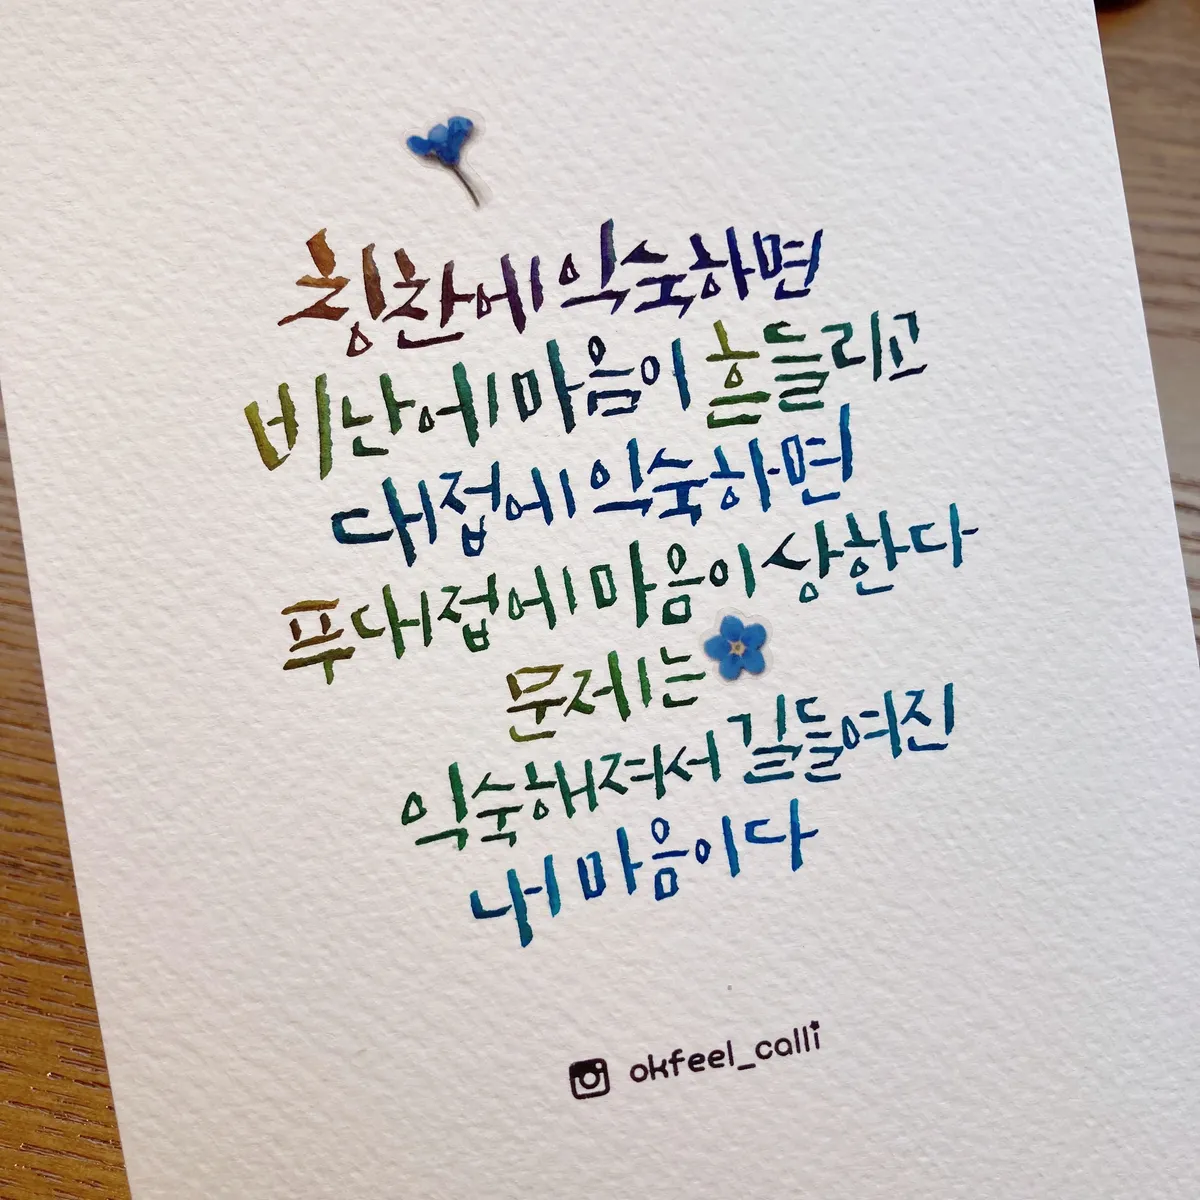 칭찬에 익숙하면
비난에 마음이 흔들리고
대접에 익숙하면
푸대접에 마음이 상한다
문제는
익숙해져서 길들여진
내 마음이다
okfeel_calli